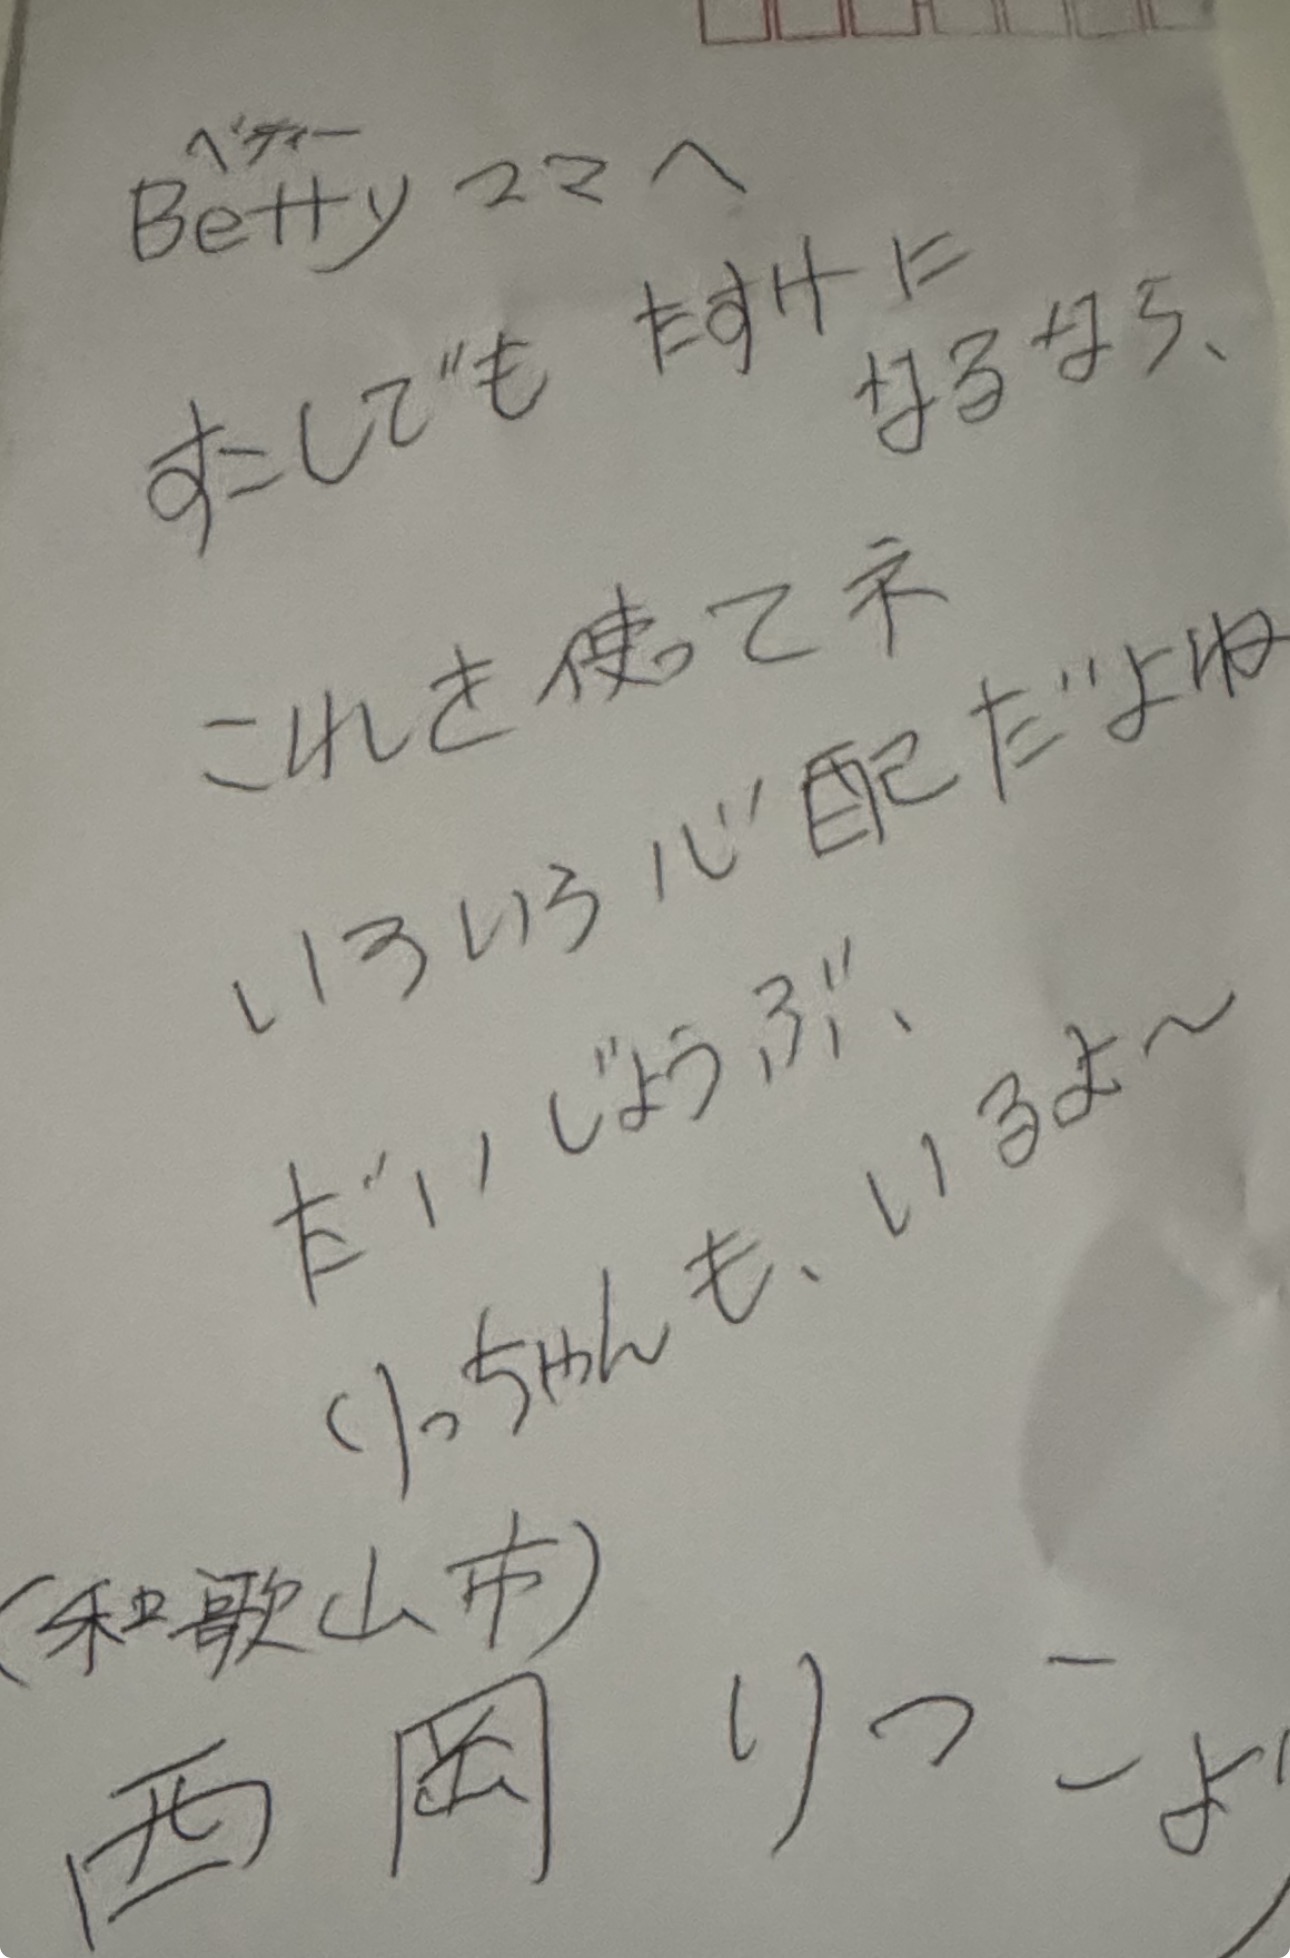 ベティー
Bettyママへ
すこしでも たすけに
なるなら、
これを使ってネ
いろいろ心配だよね
だいじょうぶ、
りっちゃんも、いるよ〜
(和歌山市)
西岡 りっこより